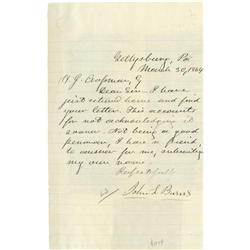 Gettysburg, Pa
March 30, 1864
Dear Sir - I have
just retured home and find
your letter. This accounts
for not acknowledging it
sooner. Not being a good
penman, I have a friend
to answer for me, subscribing
my own name.
Respectfully
John L Burns